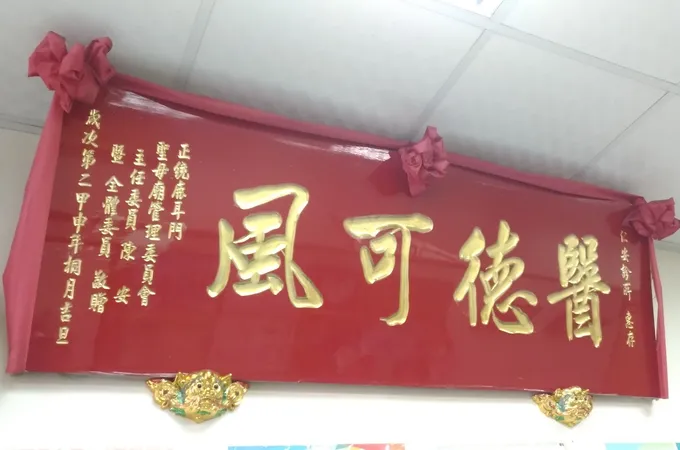 仁安診所 惠存
醫德可風
正統鹿耳門
聖母廟管理委員會
主任委員 陳安
暨 全體委員 敬贈
歲次第二甲申年桐月吉旦